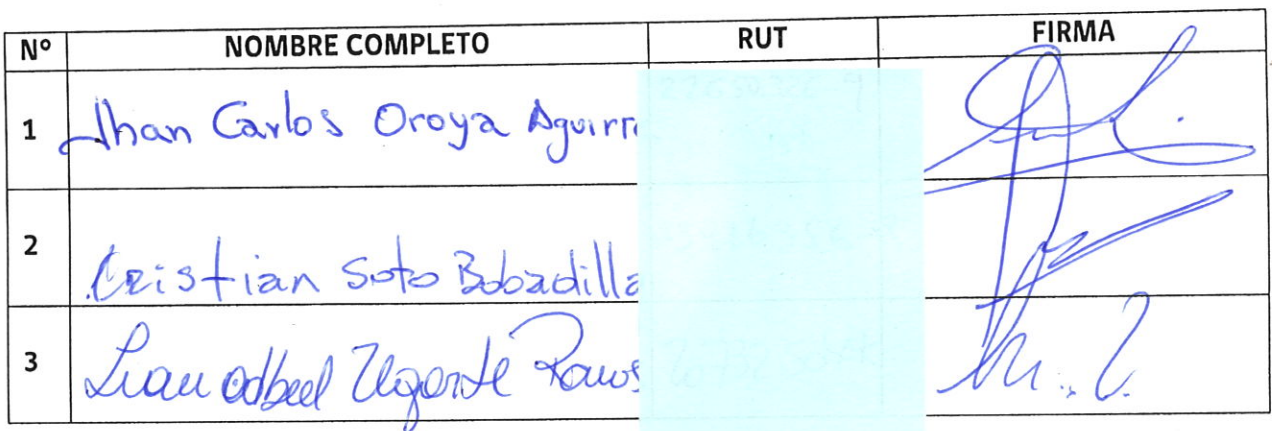 Nº NOMBRE COMPLETO RUT FIRMA
1 Jhan Carlos Oroya Aguirre
2 Cristian Soto Bobadilla
3 Ugarte Ramos